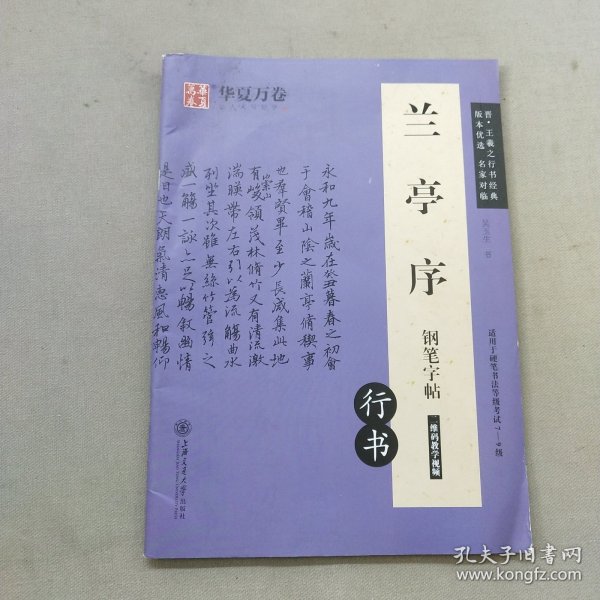 华夏万卷
兰亭序
钢笔字帖
二维码教学视频
行书
晋·王羲之行书经典
版本优选 名家对临
吴玉生 书
适用于硬笔书法等级考试7—9级
永和九年歲在癸丑暮春之初會
于會稽山陰之蘭亭脩稧事
也羣賢畢至少長咸集此地
有崇山峻領茂林脩竹又有清流激
湍暎帶左右引以為流觴曲水
列坐其次雖無絲竹管弦之
盛一觴一詠亦足以暢敘幽情
是日也天朗氣清惠風和暢仰
上海交通大学出版社
孔夫子旧书网
www.kongfz.com